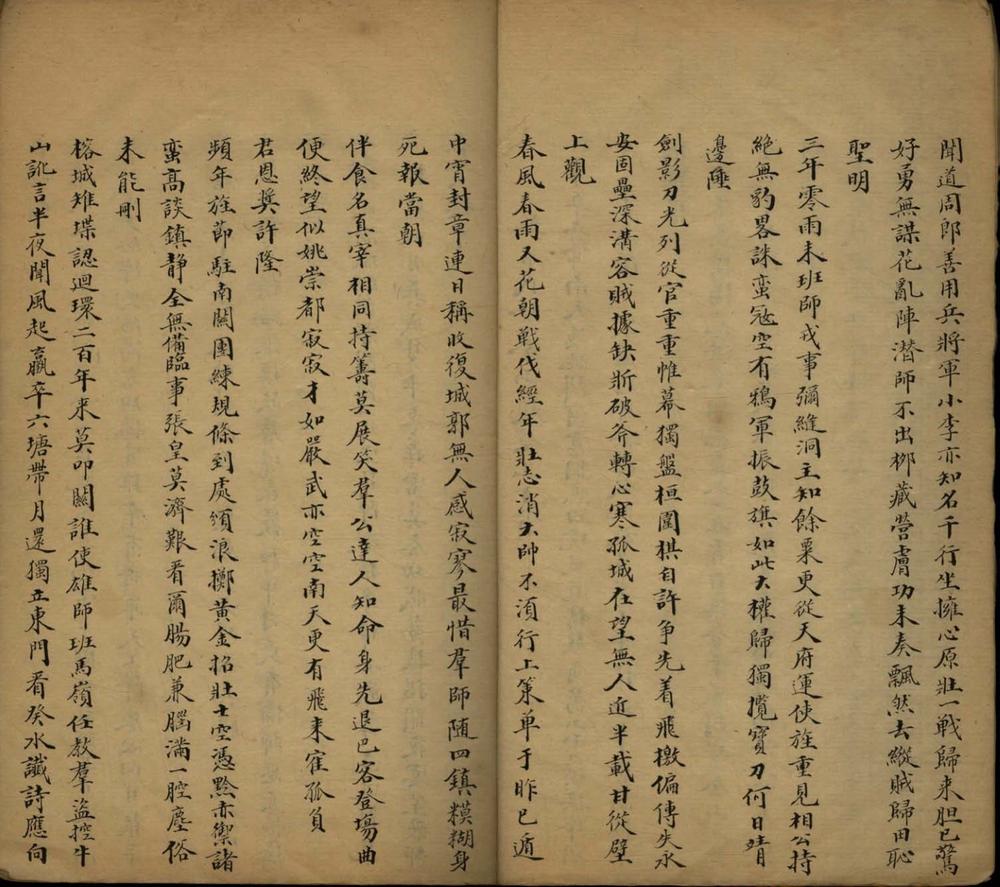 聞道周郎善用兵將軍小李亦知名千行坐擁心原壯一戰歸来胆已驚
好勇無謀花亂陣潜師不出栁藏營膚功未奏飄然去縱賊歸田恥
聖明
三年零雨未班師戎事彌縫洞主知餘粟更從天府運使旌重見相公持
絶無豹畧誅蠻冦空有鴉軍振鼓旗如此大權歸獨攬寶刀何日靖
邊陲
劍影刀光列從官重重惟幕獨盤桓圍棋自許争先着飛檄偏傳失永
安固壘深溝容賊據缺斨破斧轉心寒孤城在望無人近半載甘從壁
上觀
春風春雨又花朝戰伐經年壯志消大帥不湏行上策单于昨已遁
中宵封章連日稱收復城郭無人感寂寥最惜羣師随四鎮糢糊身
死報當朝
伴食名真宰相同持籌莫展笑羣公達人知命身先退巴客登塲曲
便終望似姚崇都寂寂才如嚴武亦空空南天更有飛来寉孤負
君恩奬許隆
頻年旌節駐南関團練規條到處頒浪擲黄金招壯士空憑黔赤禦諸
蛮高談鎮静全無備臨事張皇莫濟艱看爾腸肥兼腦满一腔塵俗
未能刪
榕城雉堞認迴環二百年来莫叩關誰使雄師班馬嶺任教羣盗控牛
山訛言半夜聞風起羸卒六塘帶月還獨立東門看癸水讖詩應向